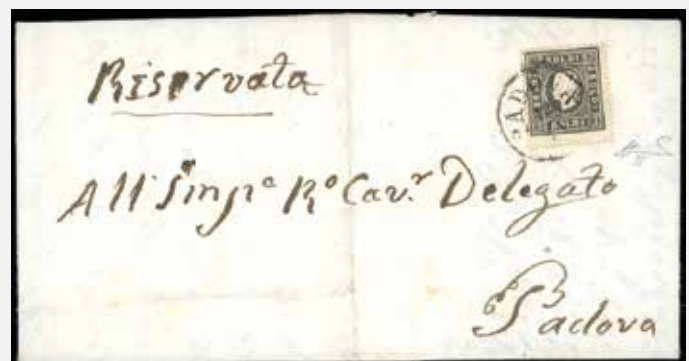 Riservata
SOLDI
All' Imp.º R.º Cav.r Delegato
Padova